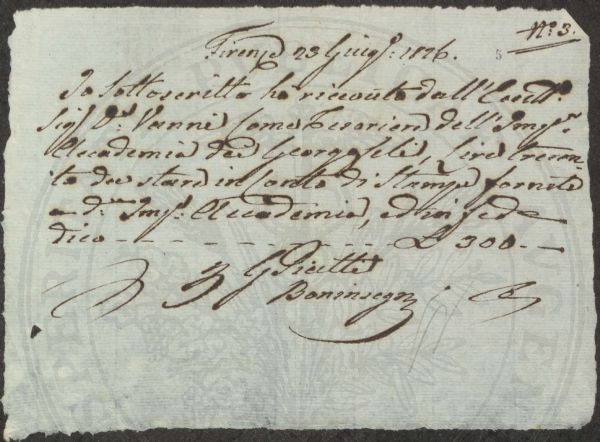 N.º 3.
Firenze 23 Giugº. 1826.
Io Sottoscritto ho ricevuto dall'Eccellº.
Sigr. Dr. Vanni Come Tesoriere dell'Impr.
Accademia dei Georgofili, Lire trecen-
to da stare in Conto di Stampe fornite
a da. Impl. Accademia, ed in fede
dico - - - - - - - £ 300. -
G Piatti
Boninsegni